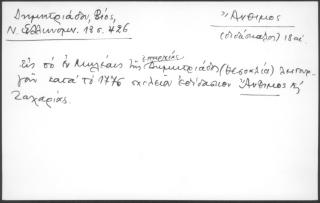 Δημητριάδη, Βίος,
Ν. Ελληνομν. 13 σ. 426
Ἄνθιμος
(διδάσκαλος) 18 αἰ
ἐπαρχίας
εἰς τὸ ἐν Μηλέαις τῆς Δημητριάδος (Θεσσαλία) λειτουρ-
γοῦν κατὰ τὸ 1776 σχολεῖον ἐδίδασκον Ἄνθιμος καὶ
Ζαχαρίας.